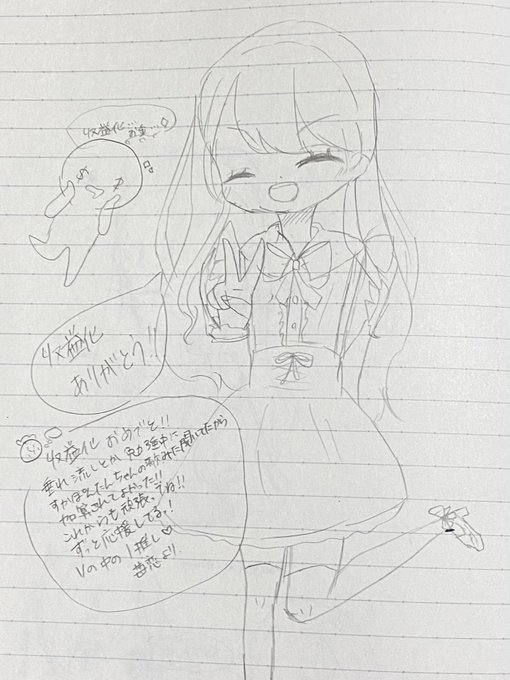 収益化…お金…
$ $
収益化
ありがとう!!
収益化おめでと!!
垂れ流しとか勉強中に
すかぽんたんちゃんの歌みた聞いてたから
加算されてよかった!!
これからも頑張ってね!!
ずっと応援してる!!
Vの中の1推し♡
より